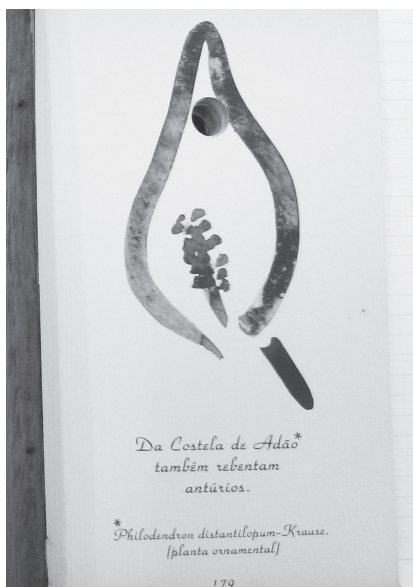 Da Costela de Adão*
também rebentam
antúrios.
*Philodendron distantilopum-Krause.
(planta ornamental)
179